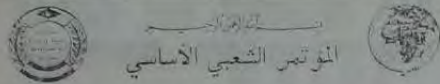 بسم الله الرحمن الرحيم
المؤتمر الشعبي الأساسي